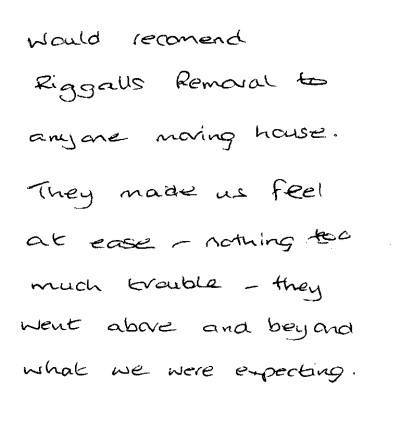 Would recomend
Riggalls Removal to
anyone moving house.
They made us feel
at ease - nothing too
much trouble - they
went above and beyond
what we were expecting.